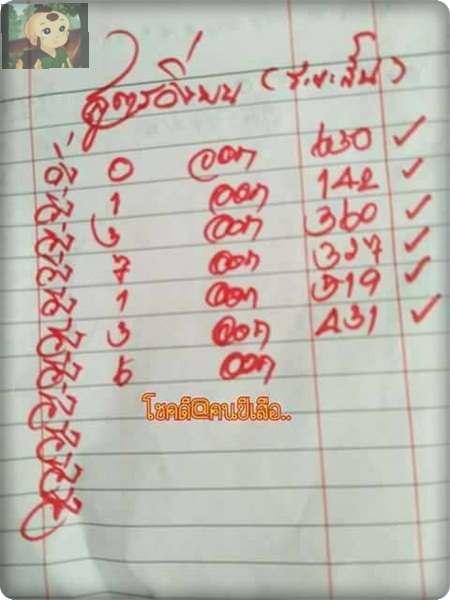 สูตรวิ่งบน (ระยะสั้น)
0 ออก 630 ✓
1 ออก 142 ✓
3 ออก 360 ✓
7 ออก 327 ✓
1 ออก 319 ✓
3 ออก 431 ✓
6 ออก
โชคดี@คนปีเสือ..